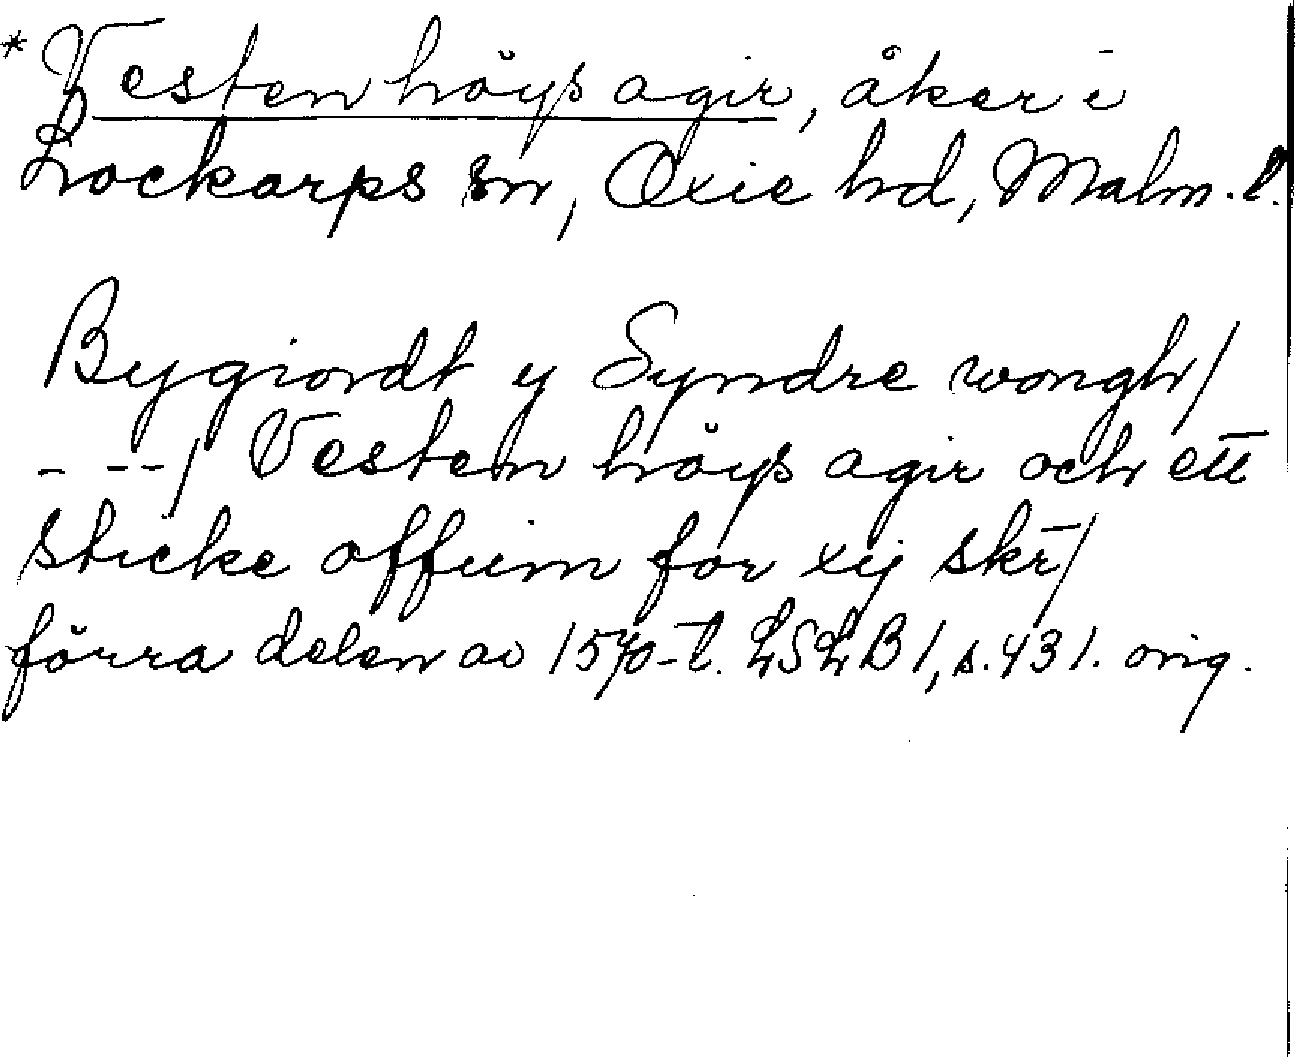 * Vesten höys agir, åker i
Lockarps sn, Oxie hd, Malm. l.
Bygiordt y Syndre wongh/
- --/ Vesten höys agir och ett
sticke offuim for xij skr/
förra delen av 1570-t. LSLB 1, s. 431. orig.